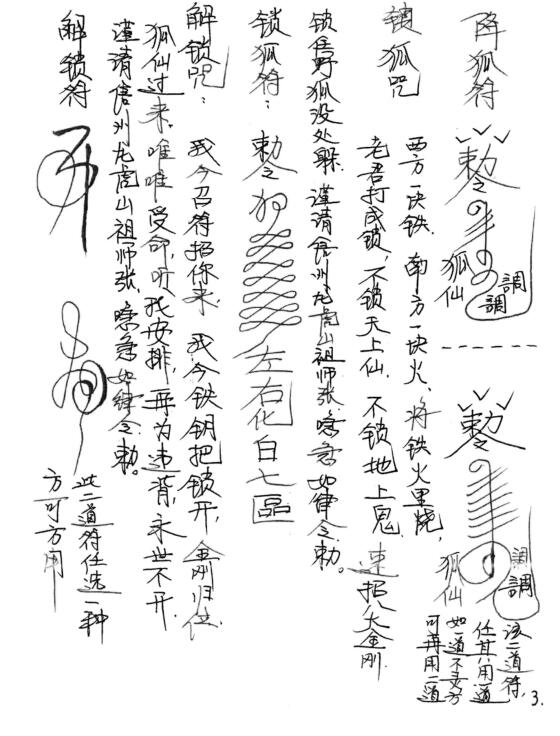 降狐符
勅令
狐仙
調調
勅令
狐仙
調調
該二道符，
任其用一道
如一道不灵方
可再用二道
锁狐咒
西方一块铁，南方一块火、将铁火里烧，
老君打成锁，不锁天上仙，不锁地上鬼，速招八大金刚
锁住野狐没处躲，谨请信州龙虎山祖师张，唵急如律令勅。
锁狐符：勅令 左右化白七區
解锁咒：我今召符招你来，我今铁钥把锁开，金刚归位
狐仙过来，唯唯受命，听我安排，再为违背，永世不开
谨请信州龙虎山祖师张，唵急如律令勅。
解锁符
此二道符任选一种
方可方用
3.